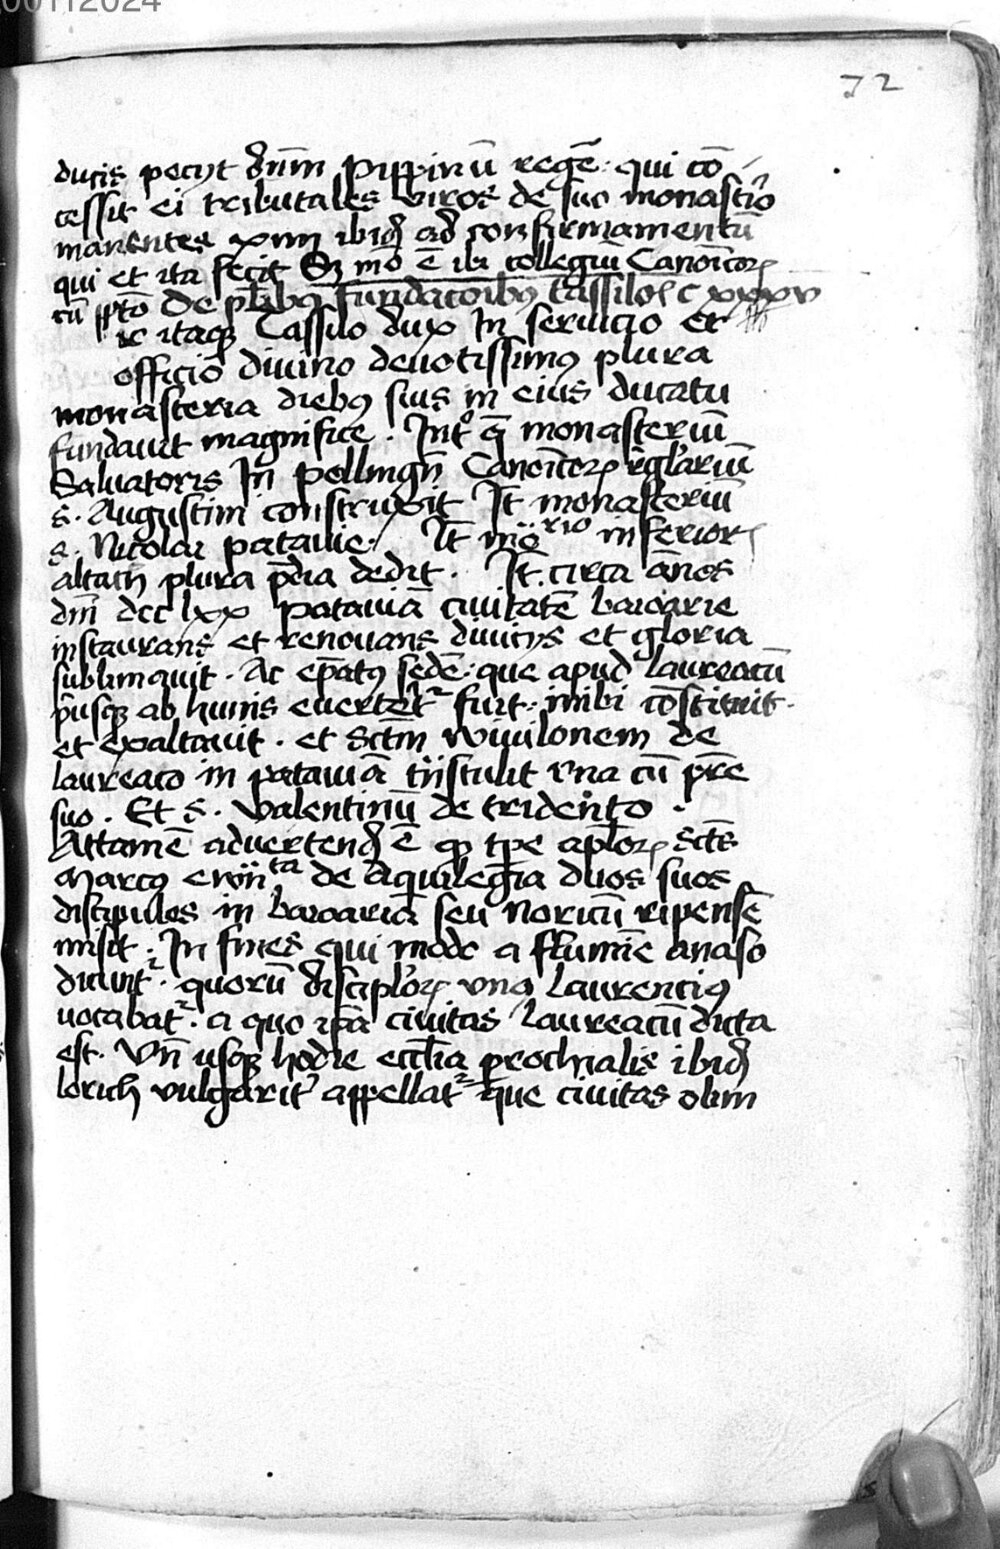 00112024
72
ducis pecijt dn̄m Pippinū regē: qui cō
cessit ei tributales viros de suo monast̄io
manentes xviii ibid ad confirmamentū
qui et ita fecit Sz mō ē ibi collegiū Canoīcoꝝ
cū p̄pto De pl̄ibꝰ fundacōibꝰ tassilois c xxxv
ic itaqꝫ Tassilo dux In seruicio et
officio diuino deuotissimꝰ plura
monasteria diebꝰ suis in eius ducatu
fundauit magnifice. Int̄ q̄ monasteriū
Saluatoris In pollingn̄ Canoīcoꝝ rḡlariū
s. Augustini construxit It̄ monasteriū
s. Nicolai patauie. It̄ mōrio inferiori
altach plura p̄dia dedit. It̄ circa ānos
dn̄i dcc lxx patauiā ciuitatē baioarie
instaurans et renouans diuicijs et gloria
sublimauit. Ac ep̄atꝰ sedē: que apud laureacū
p̄usqꝫ ab hunis euerteret̄ fuit: inibi cōstituit.
et exaltauit. et Sct̄m wiuilonem de
laureaco in patauiā trn̄stulit vna cū p̄re
suo. Et s. valentinū de tridento.
Attamē aduertend ē ꝙ tp̄e apl̄oꝝ Sct̄s
Marcꝰ ewn̄ta de aquilegia duos suos
discipulos in baioariā seu Noricū ripensē
misit. In fines qui modo a flumīe anaso
dicunt̄. quorū discipl̄oꝝ vnꝰ laurencius
vocabat̄. a quo ip̄a ciuitas laureacū dicta
est. Vn̄ usqꝫ hodie eccl̄ia prochialis ibid
lorich vulgarit̄ appellat̄ que ciuitas olim